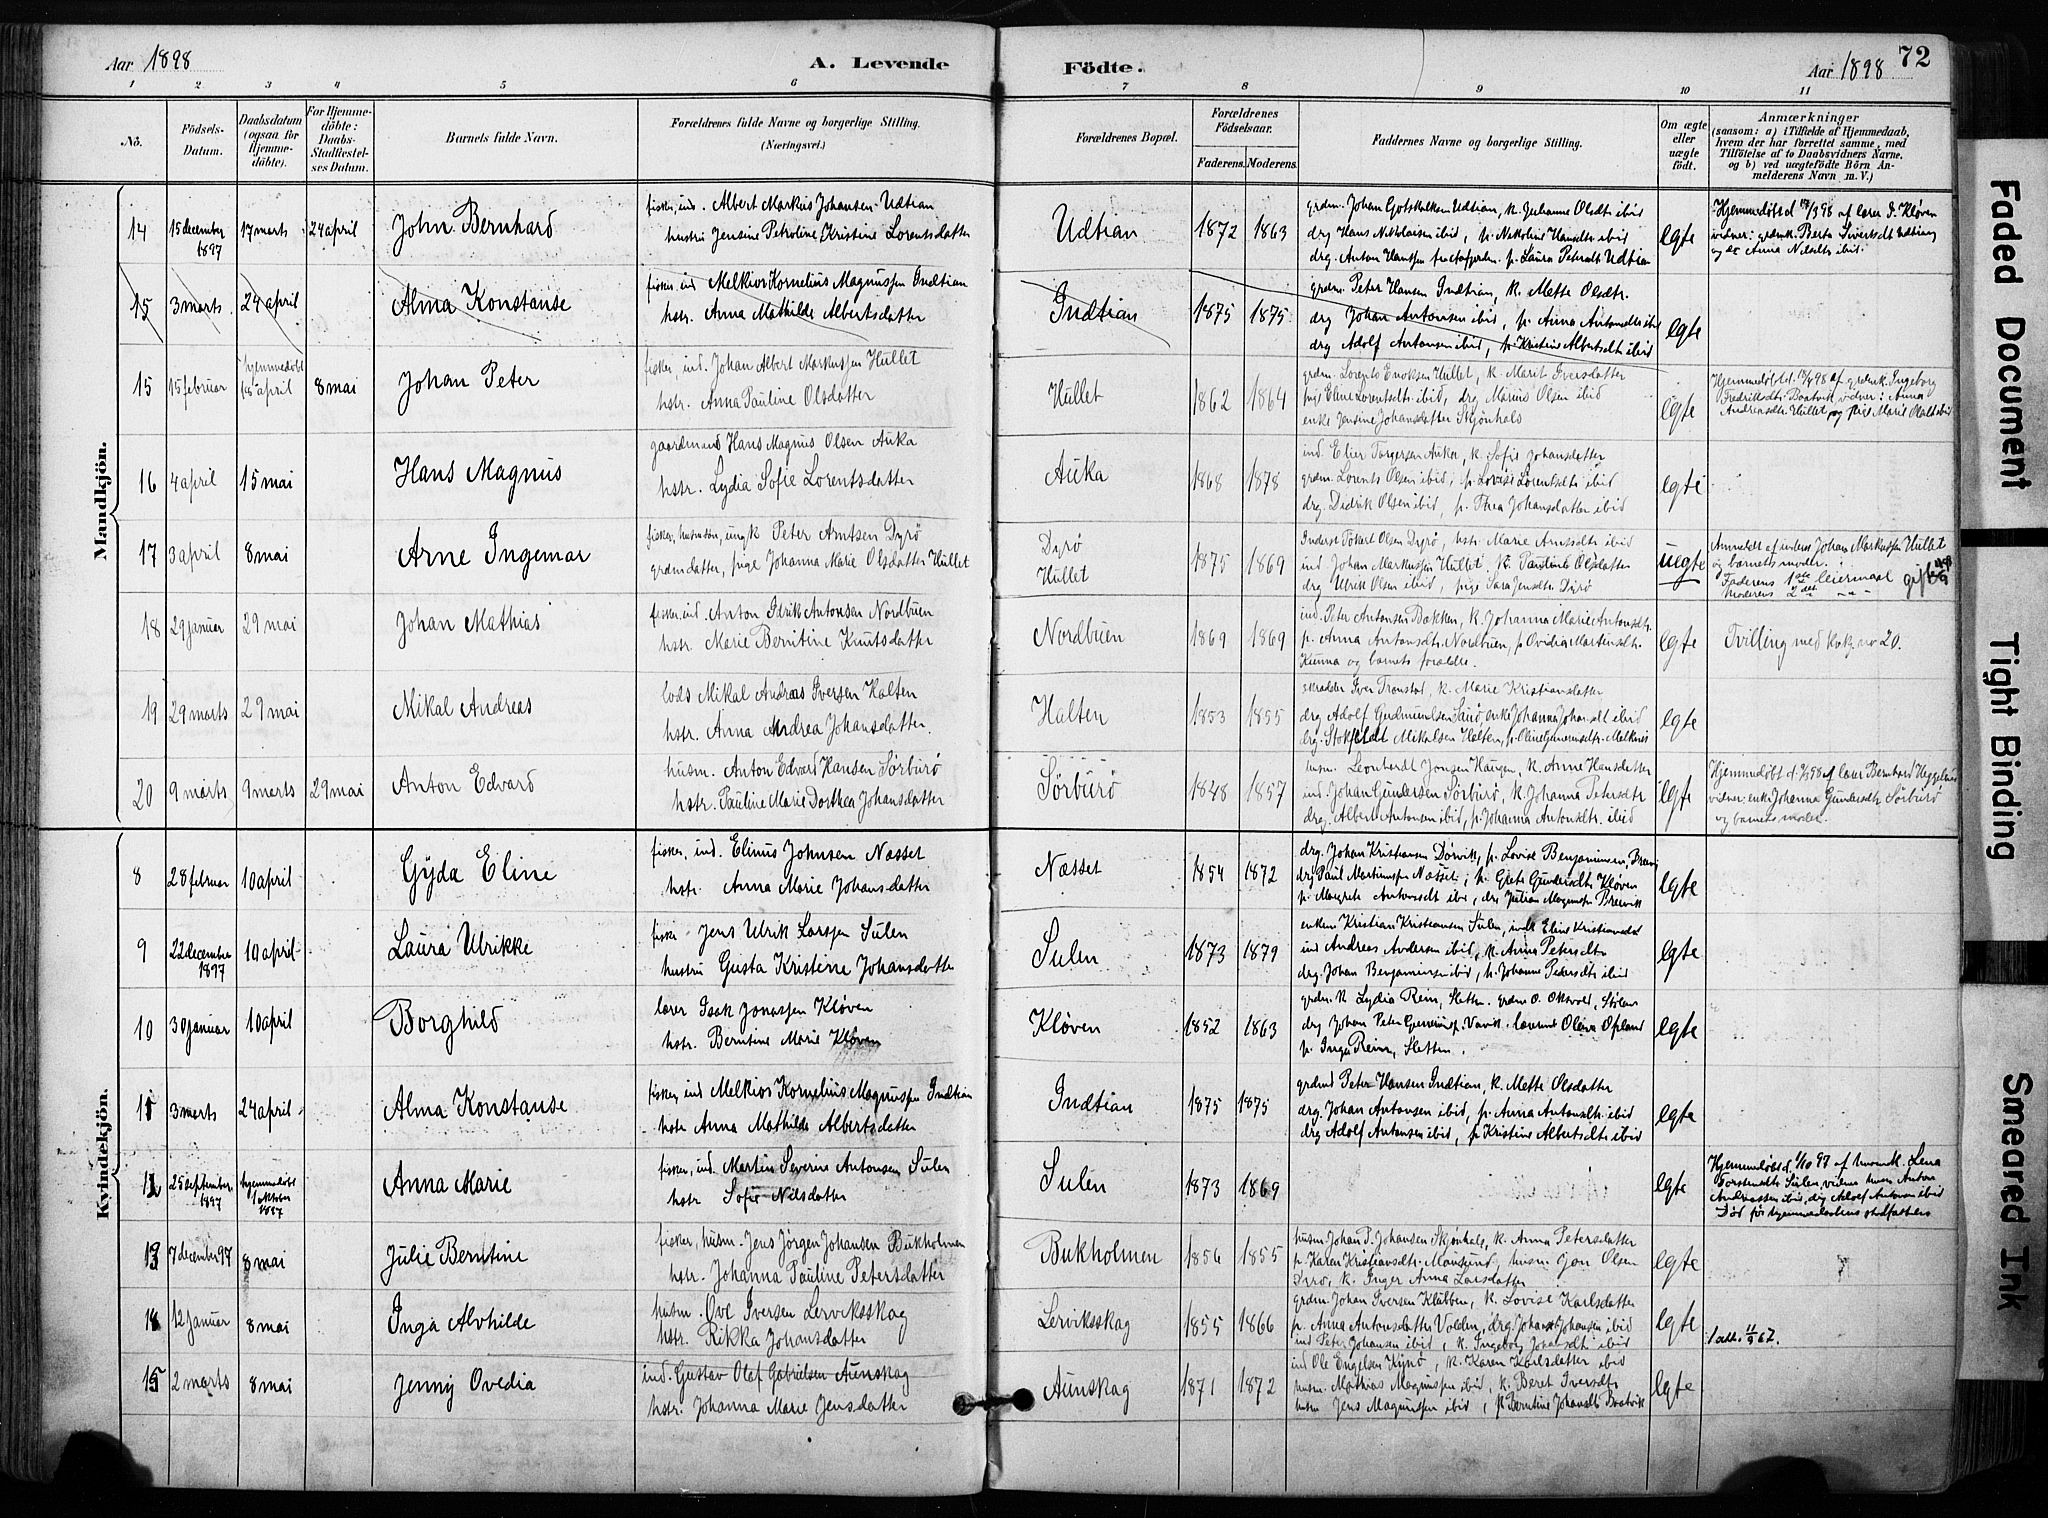 Aar 1898
A. Levende
Födte.
Aar 1898
72
1 2 3 4 5 6 7 8 9 10 11
No.
Födsels-Datum.
Daabsdatum (ogsaa for Hjemmedöbte).
For Hjemmedöbte: Daabs-Stadfæstelses Datum.
Barnets fulde Navn.
Forældrenes fulde Navne og borgerlige Stilling. (Næringsvei.)
Forældrenes Bopæl.
Forældrenes Födselsaar.
Faderens. Moderens.
Faddernes Navne og borgerlige Stilling.
Om ægte eller uægte födt.
Anmærkninger
(saasom: a) i Tilfælde af Hjemmedaab, hvem der har forrettet samme, med Tilföielse af to Daabsvidners Navne, og b) ved uægtefödte Börn Anmelderens Navn m. V.)
Mandkjön.
14 15 december 1897 17 marts 24 april John Bernhard
fisker, ind. Albert Markus Johansen Udtian
hustru Jensine Petroline Kristine Lorentsdatter
Udtian 1872 1863
grdm. Johan Gotskalksen Udtian, k. Johanne Olsdtr ibid
drg Hans Nikolaisen ibid, p. Nikoline Hansdtr ibid
drg. Anton Hansen p. Laura Petersdtr Udtian
egte
Hjemmedøbt d. 17/3 98 af lærer I. Kløven
vidner: grdmk. Berta Sivertsdt Udtian
og Anna Nilsdtr ibid.
15 3 marts 24 april Alma Konstanse
fisker, ind Melkior Kornelius Magnussen Indtian
hstr. Anna Mathilde Albertsdatter
Indtian 1875 1875
grdm. Peter Hansen Indtian, k. Mette Olsdtr.
drg Johan Antonsen ibid, p. Anna Antonsdtr ibid
drg Adolf Antonsen ibid, p. Kristine Albertsdtr ibid
egte
15 15 februar hjemmedøbt april 8 mai Johan Peter
fisker, ind. Johan Albert Markussen Hullet
hstr. Anna Pauline Olsdatter
Hullet 1862 1864
grdm. Lorents Enoksen Hullet, k. Marit Iversdatter
pige Eline Lorentsdtr ibid, drg Marius Olsen ibid
enke Jensine Johansdatter Skjønhals
egte
Hjemmedøbt d. af grdmk. Ingeborg
Fredriksdtr Boatvik, vidner: Anna
Andreasdtr Hullet og pige Marie Olsdtr ibid
16 4 april 15 mai Hans Magnus
gaardmand Hans Magnus Olsen Auka
hstr. Lydia Sofie Lorentsdatter
Auka 1868 1878
ind. Elier Torgersen Auka, k. Sofie Johansdatter
grdm. Lorents Olsen ibid, p. Lovise Lorentsdtr ibid
drg. Didrik Olsen ibid, p. Thea Johansdatter ibid
egte
17 3 april 8 mai Arne Ingemar
fisker, husmdsøn, ungk Peter Arntsen Dyrø
grdmdatter, pige Johanna Marie Olsdatter Hullet
Dyrø
Hullet
1875 1869
Inderst Tokert Olsen Dyrø, hstr. Marie ibid
ind Johan Markussen Hullet, k. Pauline Olsdatter
drg. Ulrik Olsen ibid, pige Sara Jensdtr Dyrø
uegte
Anmeldt af inderst Johan Markussen Hullet
og barnets moder.
Faderens 1ste leiermaal
Moderens 2det - " -
18 29 januar 29 mai Johan Mathias
fisker, ind. Anton Idrik Antonsen Nordbuen
hstr. Marie Berntine Knutsdatter
Nordbuen 1869 1869
ind. Peter Antonsen Bakken, k. Johanna Marie Antonsdtr.
p. Anna Antonsdtr. Nordbuen, p Ovidia Martensdtr.
Kunna og barnets forældre.
egte
Tvilling med kvk. no 20.
19 29 marts 29 mai Mikal Andreas
lods Mikal Andreas Iversen Halten
hstr. Anna Andrea Johansdatter.
Halten 1853 1855
skrædder Iver Tronstad, k. Marie Kristiansdatter
drg. Adolf Gudmundsen, enke Johanna Johansdt ibid
drg. Stokfledt Mikalsen Halten, p. Oline
egte
20 9 marts 9 marts 29 mai Anton Edvard
husm. Anton Edvard Hansen Sörburö
hstr. Pauline Marie Dorthea Johansdatter
Sörburö 1848 1857
husm. Leonhardt Jonsen Haugen, k. Anne Hansdatter
ind. Johan Gundersen Sörburö, k. Johanna Petersdtr
drg. Albert Antonsen ibid, p. Johanna Antonsdtr. ibid
egte
Hjemmedøbt d. 9/3 98 af lærer Bernhard
vidner: enke Johanna Gundersdtr Sörburö
og barnets moder.
Kvindekjön.
8 28 februar 10 april Gyda Eline
fisker, ind. Elinus Johnsen Næsset
hstr. Anna Marie Johansdatter
Næsset 1854 1872
drg. Johan Kristiansen Dørvik, p. Lovise Benjaminsen
drg Paul Martinussen Næsset, p. Grete Gundersdtr Kløven
p. Margrete Antonsdt ibid, drg Julian Magnussen Breivik
egte
9 22 december 1897 10 april Laura Ulrikke
fisker Jens Ulrik Larssen Sulen
hustru Gusta Kristine Johansdatter
Sulen 1873 1879
enkem Kristian Kristiansen Sulen, Eline Kristiansdat
ind Andreas Andersen ibid, k. Anna Petersdtr
drg. Johan Benjaminsen ibid, p. Johanne Petersdtr ibid
egte
10 30 januar 10 april Borghild
lærer Isak Jonassen Kløven
hstr. Berntine Marie Kløven
Kløven 1852 1863
grdm. k Lydia Rein, Sletten. grdm O. Oksvold, Stølan
drg Johan Peter. lærerinde Oliva Opland
p. Inga Rein, Sletten.
egte
11 3 marts 24 april Alma Konstanse
fisker, ind Melkior Kornelius Magnussen Indtian
hstr Anna Mathilde Albertsdatter
Indtian 1875 1875
grdmd Peter Hansen Indtian, k. Mette Olsdatter
drg. Johan Antonsen ibid, p. Anna Antonsdtr. ibid
drg Adolf Antonsen ibid, p. Kristine Albertsdtr ibid
egte
12 25 september 1897 hjemmedøbt 1 oktober 1897 Anna Marie
fisker, ind. Martin Severin Antonsen Sulen
hstr Sofie Nilsdatter
Sulen 1873 1869
egte
Hjemmedøbt d. 1/10 97 af husmk. Lena
Torstensdtr Sulen, vidner husm Anton
Andreassen ibid, drg Adolf Antonsen ibid
Død før hjemmedaabens stadfæstelse
13 7 december 97 8 mai Julie Berntine
fisker, husm. Jens Jörgen Johansen Bukholmen
hstr. Johanna Pauline Petersdatter
Bukholmen 1856 1855
husm Johan P. Johansen Skjønhals, k. Anna Petersdatter
p. Karen Kristiansdtr. Mausund, husm. Jon Olsen
Dyrø, k. Inger Anna Larsdatter
egte
14 12 januar 8 mai Inga Alvhilde
husm. Ove Iversen Lerviksskag
hstr. Rikka Johansdatter
Lerviksskag 1855 1866
grdm. Johan Iversen Klubben, k. Lovise Karlsdatter
p. Anna Antonsdatter Volden, drg. Johan Johansen ibid
ind Peter Johansen ibid, k. Ingeborg ibid
egte
1 att. 11/9 62.
15 2 marts 8 mai Jenny Ovedia
ind. Gustav Olaf Gabrielsen Aunskag
hstr. Johanna Marie Jensdatter
Aunskag 1871 1872
ind Ole Engelsen Kjnø, k. Karen Karlsdatter ibid
husm. Mathias Magnussen ibid, k. Beret Iversdtr
husm Jens Magnussen ibid, p Berntine Johansdtr Boatvik
egte
Faded Document
Tight Binding
Smeared Ink